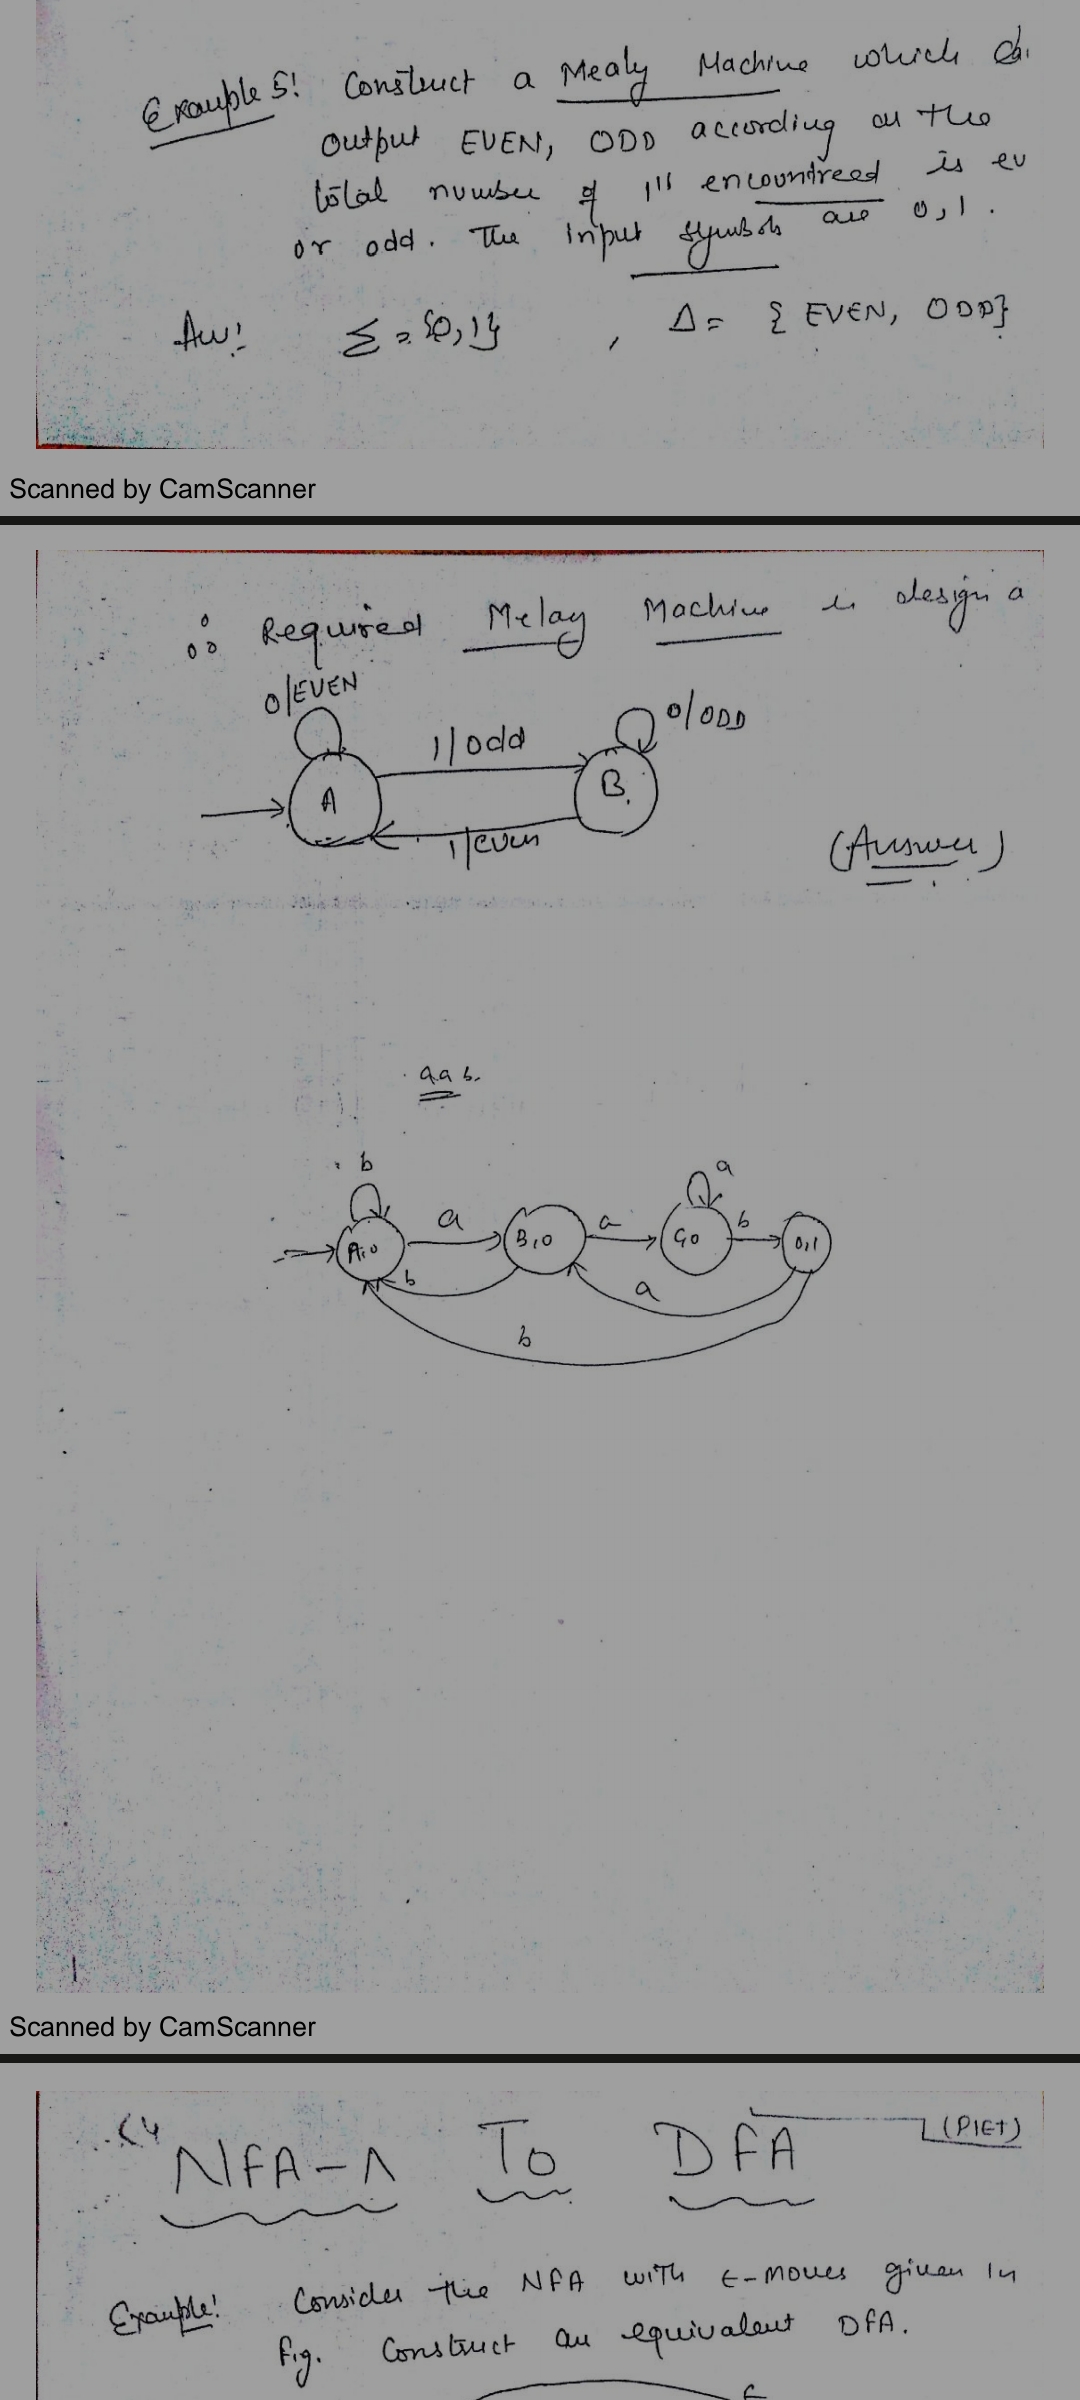 Example 5! Construct a Mealy Machine which
output EVEN, ODD according as the
total number of 1's encountreed is ev
or odd. The input symbols are 0,1.
Aw! Σ = {0,1} , Δ = { EVEN, ODD}
Scanned by CamScanner
∴ Required Melay Machine is design a
0/EVEN
0/ODD
1/odd
A
B
1/even
(Answer)
a a b.
b
a
a
a
b
A,0
B,0
C,0
D,1
b
a
b
Scanned by CamScanner
(PIET)
NFA-Λ To DFA
Example! Consider the NFA with ε-moves given in
fig. Construct an equivalent DFA.